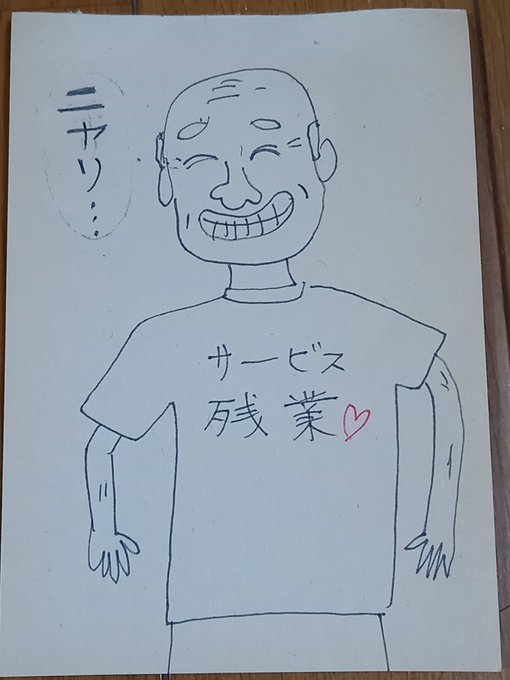 ニヤリ…
サービス
残業♡